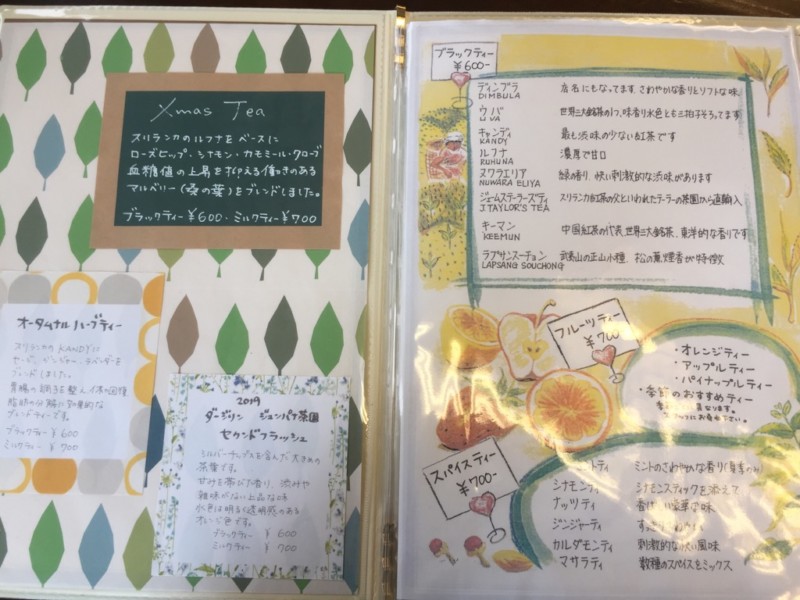 Xmas Tea
スリランカのルフナをベースに
ローズヒップ・シナモン・カモミール・クローブ
血糖値の上昇を抑える働きのある
マルベリー(桑の葉)をブレンドしました。
ブラックティー¥600・ミルクティー¥700
オータムナルハーブティー
スリランカのKANDYに
ブレンドしました。
ブレンドティーです。
ブラックティー ¥600
ミルクティー ¥700
2019
ダージリン ジュンパナ茶園
セカンドフラッシュ
シルバーチップスを含んだ大きめの
茶葉です。
甘みを帯びた香り、渋みや
雑味がない上品な味
水色は明るく透明感のある
オレンジ色です。
ブラックティー ¥600
ミルクティー ¥700
ブラックティー
¥600-
ディンブラ 店名にもなってます さわやかな香りとソフトな味
DIMBULA
ウバ 世界三大銘茶の1つ、味香り水色とも三拍子そろってます
UVA
キャンディ 最も渋味の少ない紅茶です
KANDY
ルフナ 濃厚で甘口
RUHUNA
ヌワラエリア 緑の香り、快い刺激的な渋味があります
NUWARA ELIYA
ジェームステーラーズティ スリランカ紅茶の父といわれたテーラーの茶園から直輸入
J.TAYLOR'S TEA
キーマン 中国紅茶の代表、世界三大銘茶、東洋的な香りです
KEEMUN
ラプサンスーチョン 武夷山の正山小種、松の薫煙香が特徴
LAPSANG SOUCHONG
フルーツティー
¥700
・オレンジティー
・アップルティー
・パイナップルティー
・季節のおすすめティー
スパイスティー
¥700-
ミントのさわやかな香り
シナモンティ シナモンスティックを添えて
ナッツティ 豪華な味
ジンジャーティ
カルダモンティ 刺激的な快い風味
マサラティ 数種のスパイスをミックス